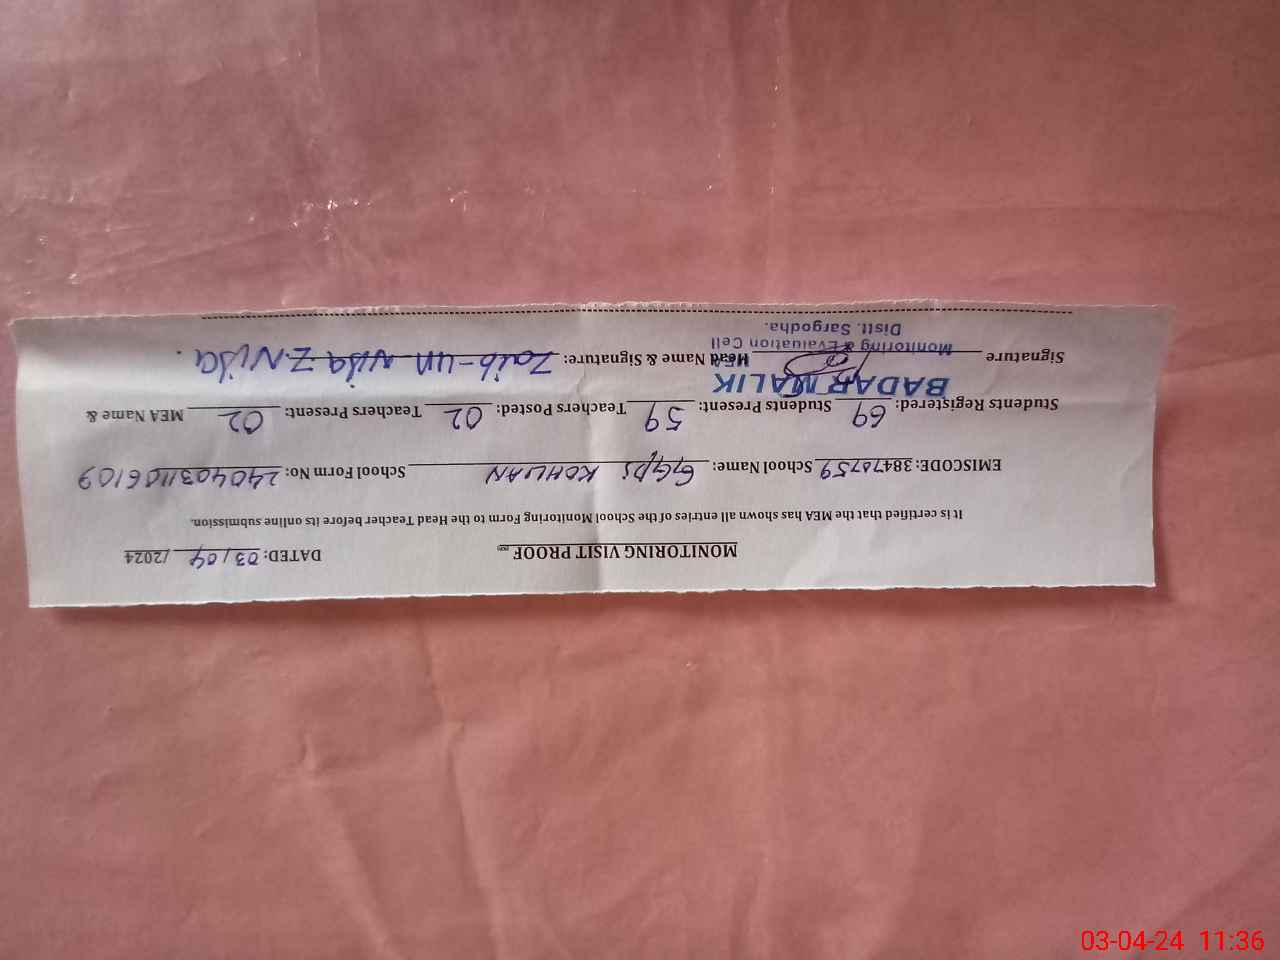 MONITORING VISIT PROOF
DATED: 03/04/2024
It is certified that the MEA has shown all entries of the School Monitoring Form to the Head Teacher before its online submission.
EMISCODE: 38470759 School Name: GGPS KOHLIAN School Form No: 2404031106109
Students Registered: 69 Students Present: 59 Teachers Posted: 02 Teachers Present: 02 MEA Name &
BADAR MALIK
Signature Head Name & Signature: Zaib-un Nisa Z.Nisa.
Monitoring & Evaluation Cell
Distt. Sargodha.
03-04-24 11:36